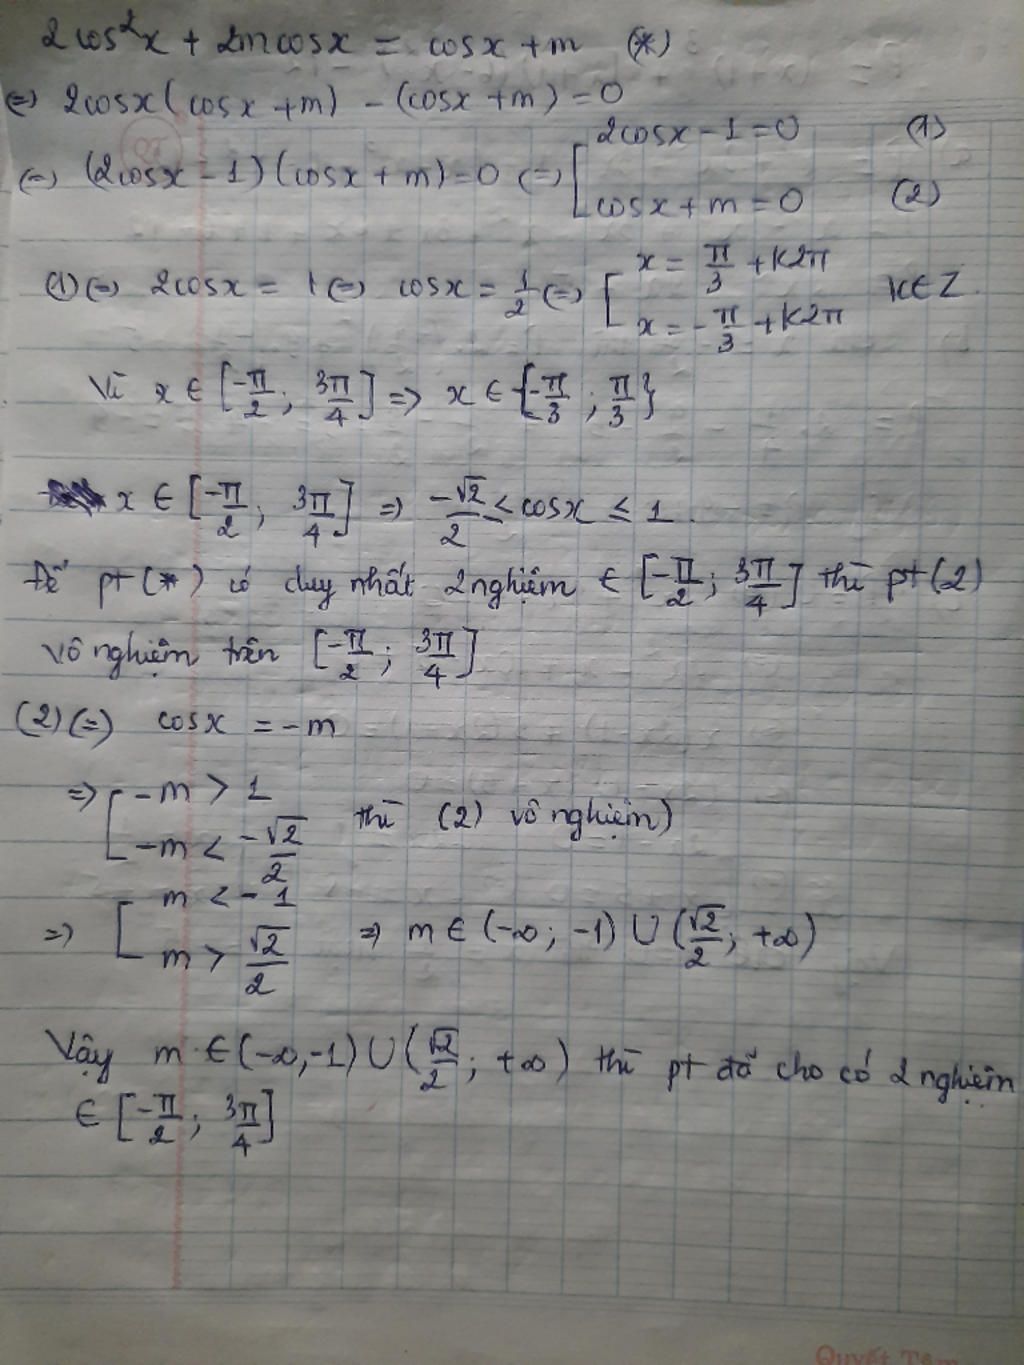 2cos²x + 2m cosx = cosx + m (*)
(=) 2cosx(cosx + m) - (cosx + m) = 0
(=) (2cosx - 1)(cosx + m) = 0 (=) [ 2cosx - 1 = 0 (1)
cosx + m = 0 (2)
(1) (=) 2cosx = 1 (=) cosx = 1/2 (=) [ x = π/3 + k2π
x = -π/3 + k2π k∈Z.
Vì x ∈ [-π/2 ; 3π/4] => x ∈ {-π/3 ; π/3}
x ∈ [-π/2 ; 3π/4] => -√2/2 ≤ cosx ≤ 1.
Để pt (*) có duy nhất 2 nghiệm ∈ [-π/2 ; 3π/4] thì pt (2)
vô nghiệm trên [-π/2 ; 3π/4]
(2) (=) cosx = -m
=> [ -m > 1
-m < -√2/2 thì (2) vô nghiệm)
=> [ m < -1
m > √2/2 => m ∈ (-∞ ; -1) ∪ (√2/2 ; +∞)
Vậy m ∈ (-∞, -1) ∪ (√2/2 ; +∞) thì pt đã cho có 2 nghiệm
∈ [-π/2 ; 3π/4]